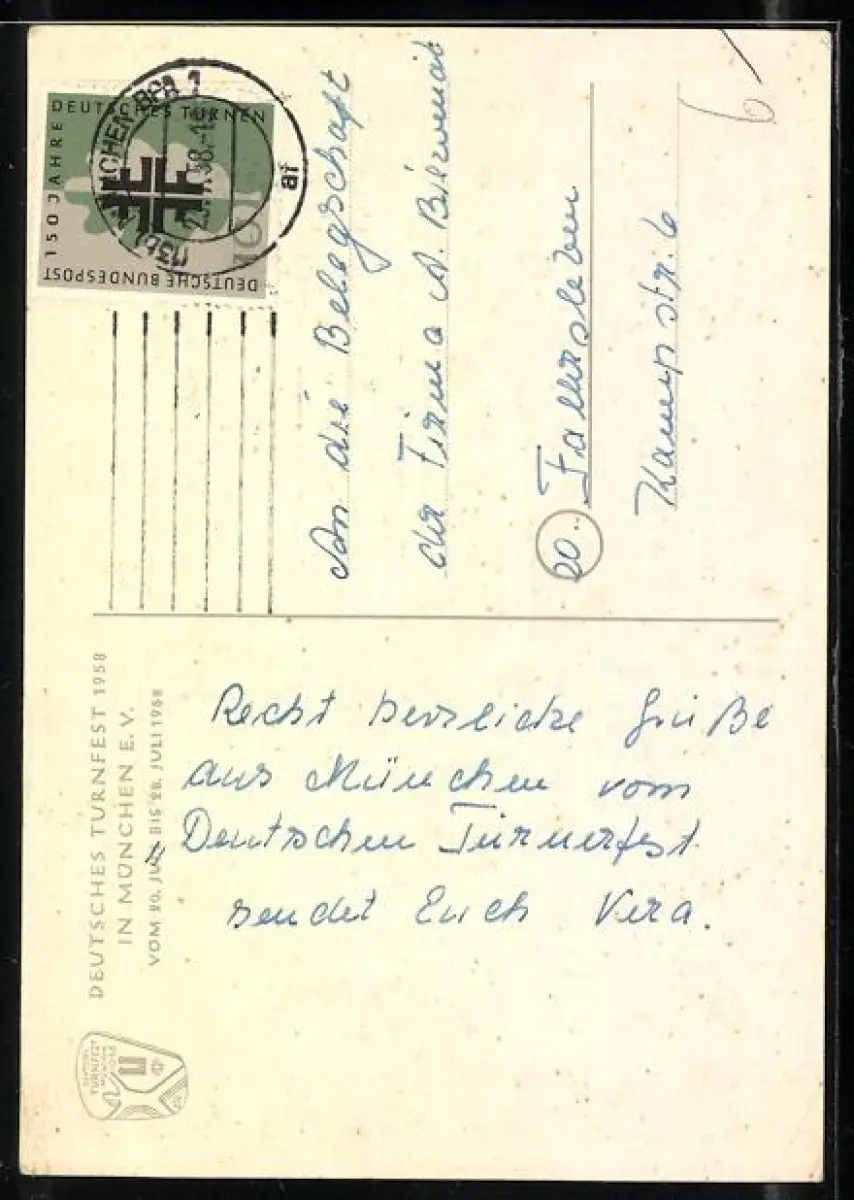 150 JAHRE
DEUTSCHES TURNEN
DEUTSCHE BUNDESPOST
10
(13b) MÜNCHEN BPA 1
58.-1
af
An die Belegschaft
der Firma A.
20. Fallersleben
Kampstr. 6
6
DEUTSCHES TURNFEST 1958
IN MÜNCHEN E.V.
VOM 20. JULI BIS 28. JULI 1958
Recht herzliche Grüße
aus München vom
Deutschen Turnerfest
sendet Euch Vera.
TURNFEST
MÜNCHEN